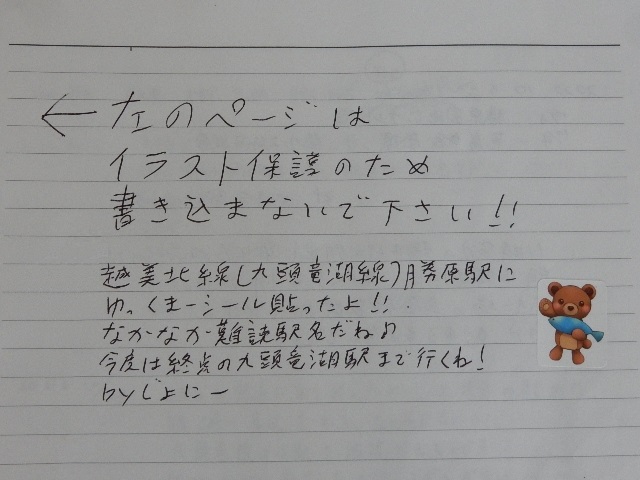 ←左のページは
イラスト保護のため
書き込まないで下さい!!
越美北線(九頭竜湖線)勝原駅に
ゆっくまーシール貼ったよ!!
なかなか難読駅名だね
今度は終点の九頭竜湖駅まで行くね!
byじょにー